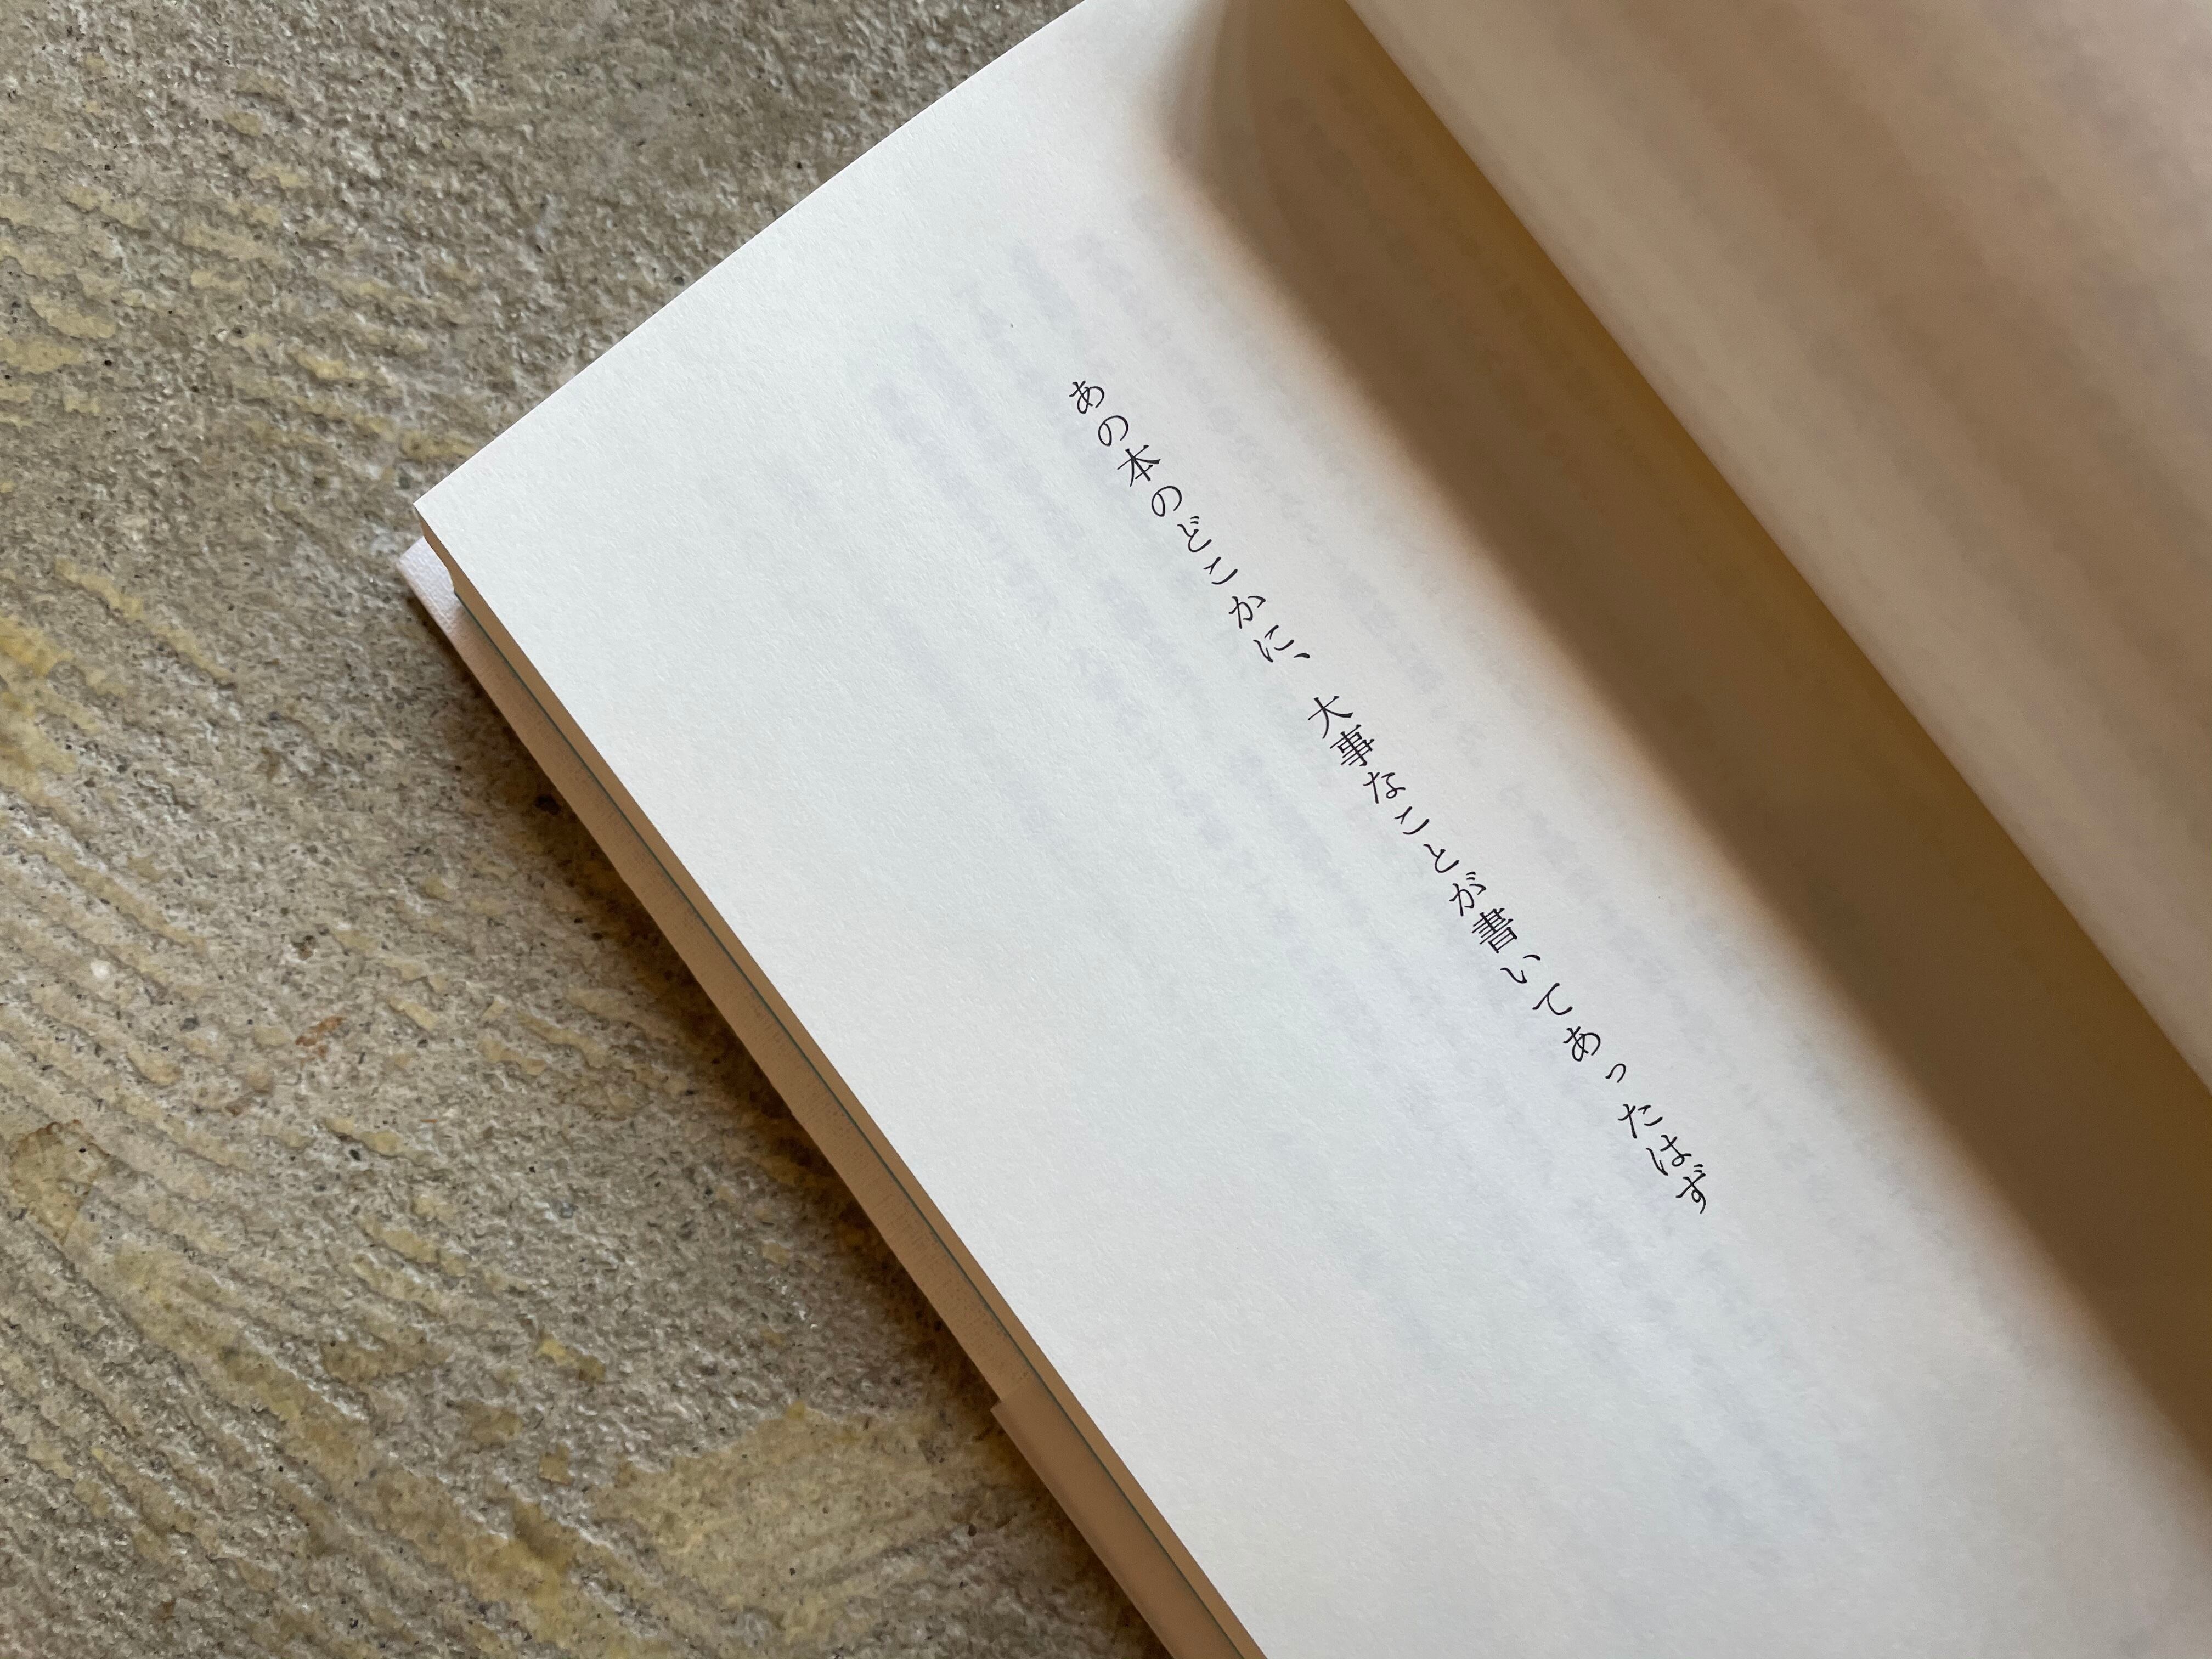 あの本のどこかに、大事なことが書いてあったはず